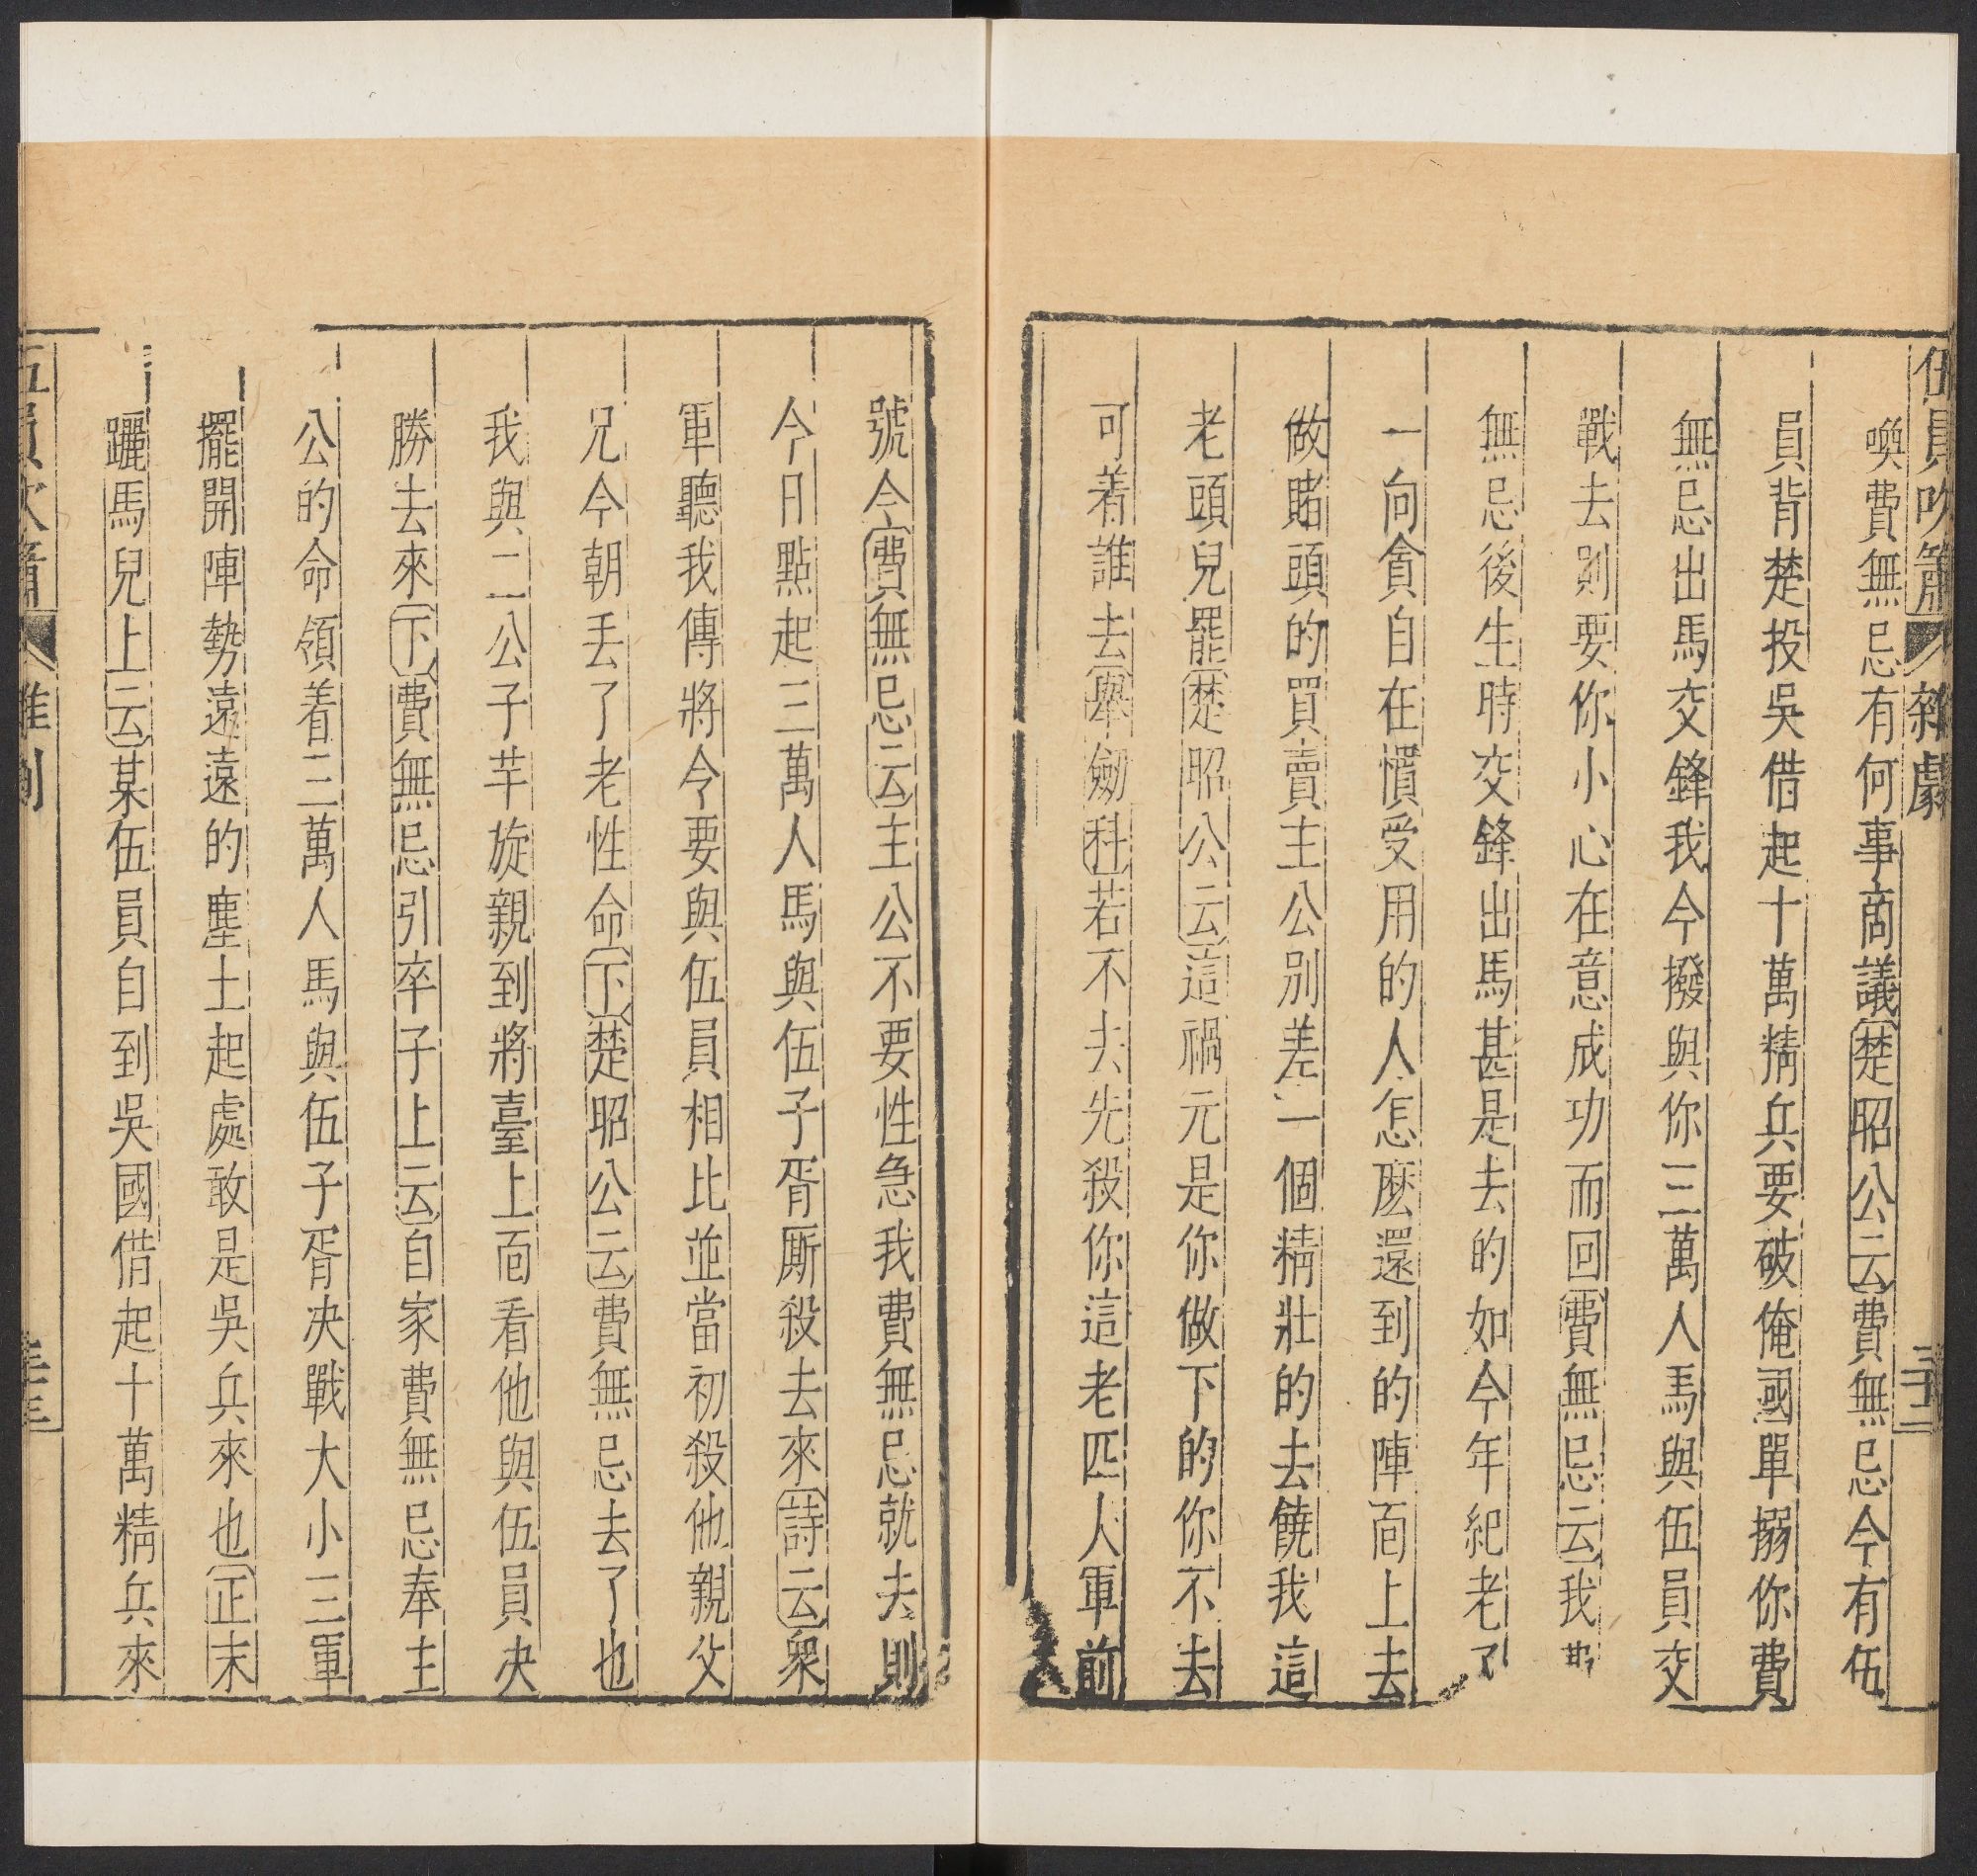 伍員吹簫 雜劇 三十二
喚費無忌有何事商議楚昭公云費無忌今有伍
員背楚投吳借起十萬精兵要破俺國單搦你費
無忌出馬交鋒我今撥與你三萬人馬與伍員交
戰去則要你小心在意成功而回費無忌云我費
無忌後生時交鋒出馬甚是去的如今年紀老了
一向貪自在慣受用的人怎麽還到的陣面上去
做賭頭的買賣主公別差一個精壯的去饒我這
老頭兒罷楚昭公云這禍元是你做下的你不去
可着誰去舉劒科若不去先殺你這老匹人軍前
號令費無忌云主公不要性急我費無忌就去則
今日點起三萬人馬與伍子胥厮殺去來詩云衆
軍聽我傳將令要與伍員相比並當初殺他親父
兄今朝丟了老性命下楚昭公云費無忌去了也
我與二公子芊旋親到將臺上面看他與伍員决
勝去來下費無忌引卒子上云自家費無忌奉主
公的命領着三萬人馬與伍子胥决戰大小三軍
擺開陣勢遠遠的塵土起處敢是吳兵來也正末
躧馬兒上云某伍員自到吳國借起十萬精兵來
伍員吹簫 雜劇